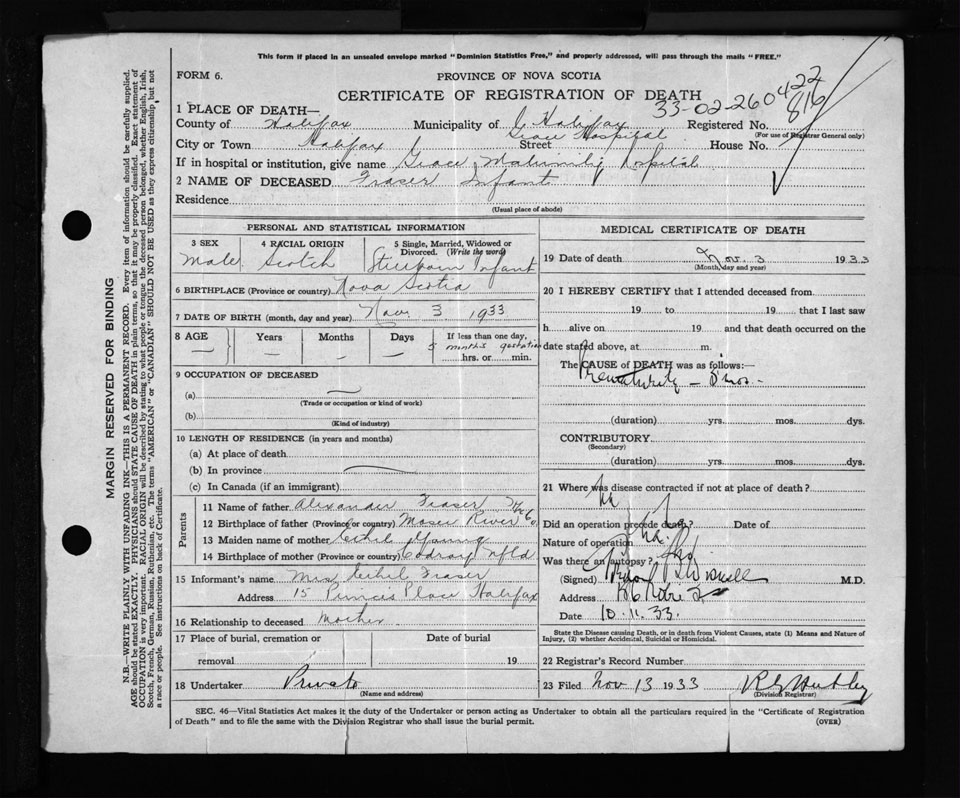 This form if placed in an unsealed envelope marked "Dominion Statistics Free," and properly addressed, will pass through the mails "FREE."
FORM 6.
PROVINCE OF NOVA SCOTIA
CERTIFICATE OF REGISTRATION OF DEATH
33-02-260422
816
1 PLACE OF DEATH—
County of Halifax Municipality of Halifax Registered No.
(For use of Registrar General only)
Grace Hospital
City or Town Halifax Street House No.
If in hospital or institution, give name Grace Maternity Hospital
2 NAME OF DECEASED Fraser Infant
Residence
(Usual place of abode)
PERSONAL AND STATISTICAL INFORMATION
3 SEX 4 RACIAL ORIGIN 5 Single, Married, Widowed or Divorced. (Write the word)
Male Scotch Stillborn Infant
6 BIRTHPLACE (Province or country) Nova Scotia
7 DATE OF BIRTH (month, day and year) Nov. 3 1933
8 AGE Years Months Days If less than one day,
— — — 5 months gestation
hrs. or min.
9 OCCUPATION OF DECEASED
(a) —
(Trade or occupation or kind of work)
(b)
(Kind of industry)
10 LENGTH OF RESIDENCE (in years and months)
(a) At place of death
(b) In province
(c) In Canada (if an immigrant)
Parents
11 Name of father Alexander Fraser
12 Birthplace of father (Province or country) Moser River
13 Maiden name of mother Ethel Young
14 Birthplace of mother (Province or country) Codroy Nfld
15 Informant's name Mrs Ethel Fraser
Address 15 Princes Place Halifax
16 Relationship to deceased Mother
17 Place of burial, cremation or removal Date of burial
19
18 Undertaker Private
(Name and address)
MEDICAL CERTIFICATE OF DEATH
19 Date of death Nov. 3 1933
(Month, day and year)
20 I HEREBY CERTIFY that I attended deceased from
19 to 19 that I last saw
h alive on 19 and that death occurred on the
date stated above, at m.
The CAUSE OF DEATH was as follows:—
Prematurity – 5 mos –
(duration) yrs. mos. dys.
CONTRIBUTORY
(Secondary)
(duration) yrs. mos. dys.
21 Where was disease contracted if not at place of death?
Did an operation precede death? Date of
Nature of operation
Was there an autopsy?
(Signed) M.D.
Address
Date 10.11.33.
State the Disease causing Death, or in death from Violent Causes, state (1) Means and Nature of Injury, (2) whether Accidental, Suicidal or Homicidal.
22 Registrar's Record Number
23 Filed Nov 13 1933
(Division Registrar)
SEC. 46—Vital Statistics Act makes it the duty of the Undertaker or person acting as Undertaker to obtain all the particulars required in the "Certificate of Registration
of Death" and to file the same with the Division Registrar who shall issue the burial permit.
(OVER)
MARGIN RESERVED FOR BINDING
N.B.—WRITE PLAINLY WITH UNFADING INK—THIS IS A PERMANENT RECORD. Every item of information should be carefully supplied.
AGE should be stated EXACTLY. PHYSICIANS should STATE CAUSE OF DEATH in plain terms, so that it may be properly classified. Exact statement of
OCCUPATION is very important. RACIAL ORIGIN will be described by stating to what people or tongue the deceased person belonged, whether English, Irish,
Scotch, French, German, Russian, Ruthenian, etc. The terms "AMERICAN" or "CANADIAN" SHOULD NOT BE USED as they express citizenship, but not
a race or people. See instructions on back of Certificate.